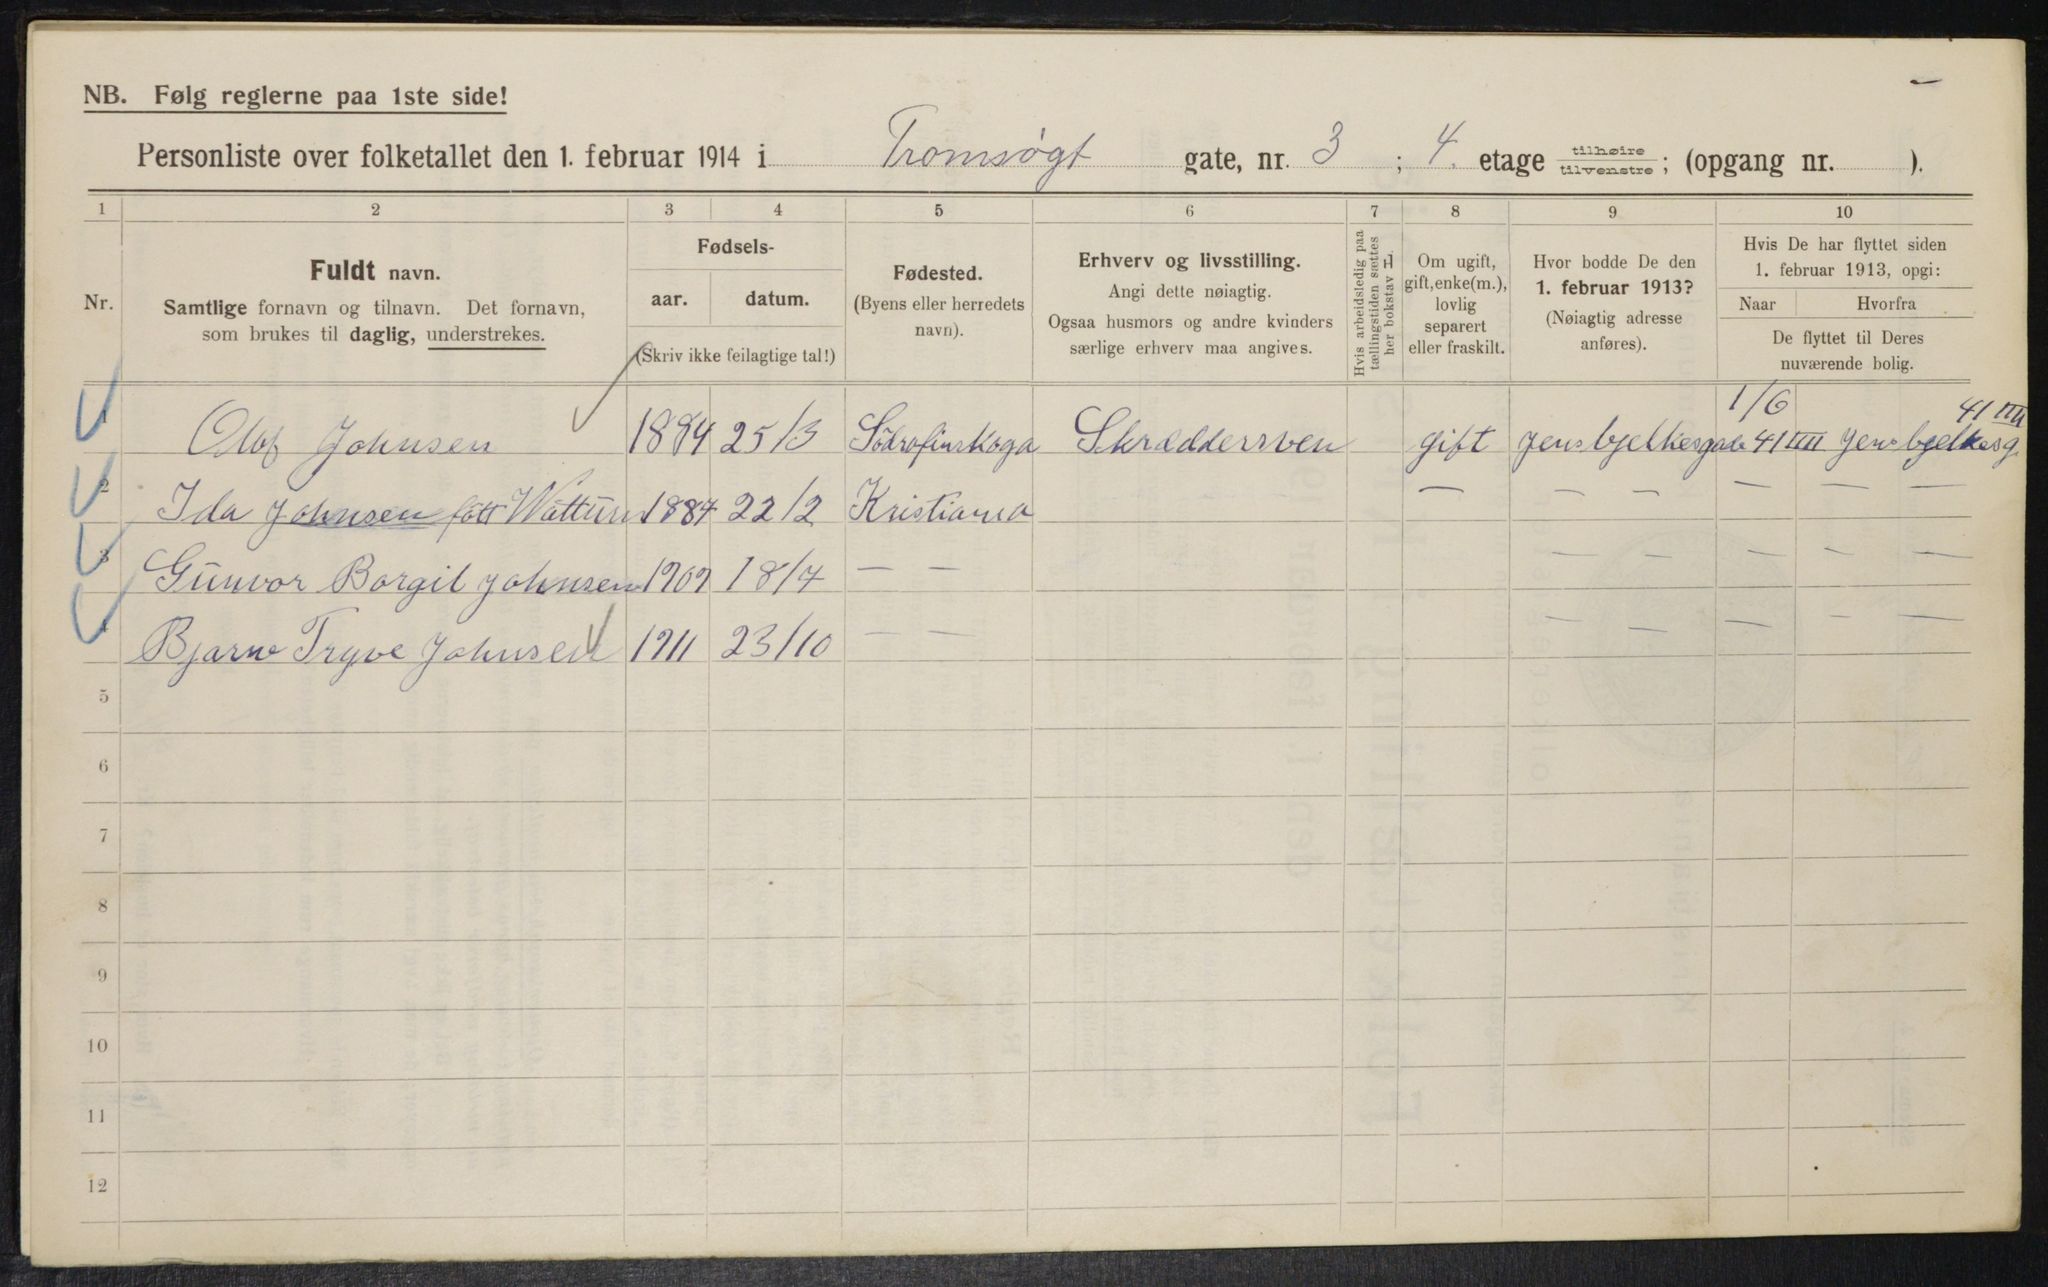 NB. Følg reglerne paa 1ste side!
Personliste over folketallet den 1. februar 1914 i Tromsøgt gate, nr. 3 ; 4. etage tilhøire tilvenstre ; (opgang nr. ).
1 2 3 4 5 6 7 8 9 10
Nr.
Fuldt navn.
Samtlige fornavn og tilnavn. Det fornavn,
som brukes til daglig, understrekes.
Fødsels-
aar. datum.
(Skriv ikke feilagtige tal!)
Fødested.
(Byens eller herredets
navn).
Erhverv og livsstilling.
Angi dette nøiagtig.
Ogsaa husmors og andre kvinders
særlige erhverv maa angives.
Hvis arbeidsledig paa
tællingstiden sættes
her bokstav L
Om ugift,
gift, enke(m.),
lovlig
separert
eller fraskilt.
Hvor bodde De den
1. februar 1913?
(Nøiagtig adresse
anføres).
Hvis De har flyttet siden
1. februar 1913, opgi:
Naar Hvorfra
De flyttet til Deres
nuværende bolig.
1 Olof Johnsen 1884 25/3 Södrafinskoga Skræddersven gift Jens bjelkesgade 41 IIII 1/6 Jens bjelkesg 41 IIII
2 Ida Johnsen fött Wattürn 1887 22/2 Kristiania — — — — — —
3 Günvor Borgil Johnsen 1909 18/7 — — — — — — —
4 Bjarne Tryve Johnsen 1911 23/10 — — — — — — —
5
6
7
8
9
10
11
12